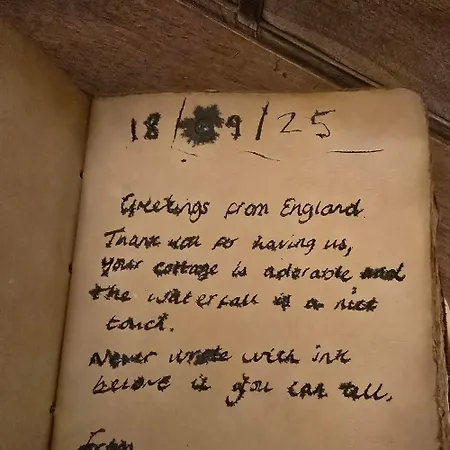 18/09/25
Greetings from England.
Thank you for having us,
your cottage is adorable and
the waterfall is a nice
touch.
Never wrote with ink
before if you can tell,
from